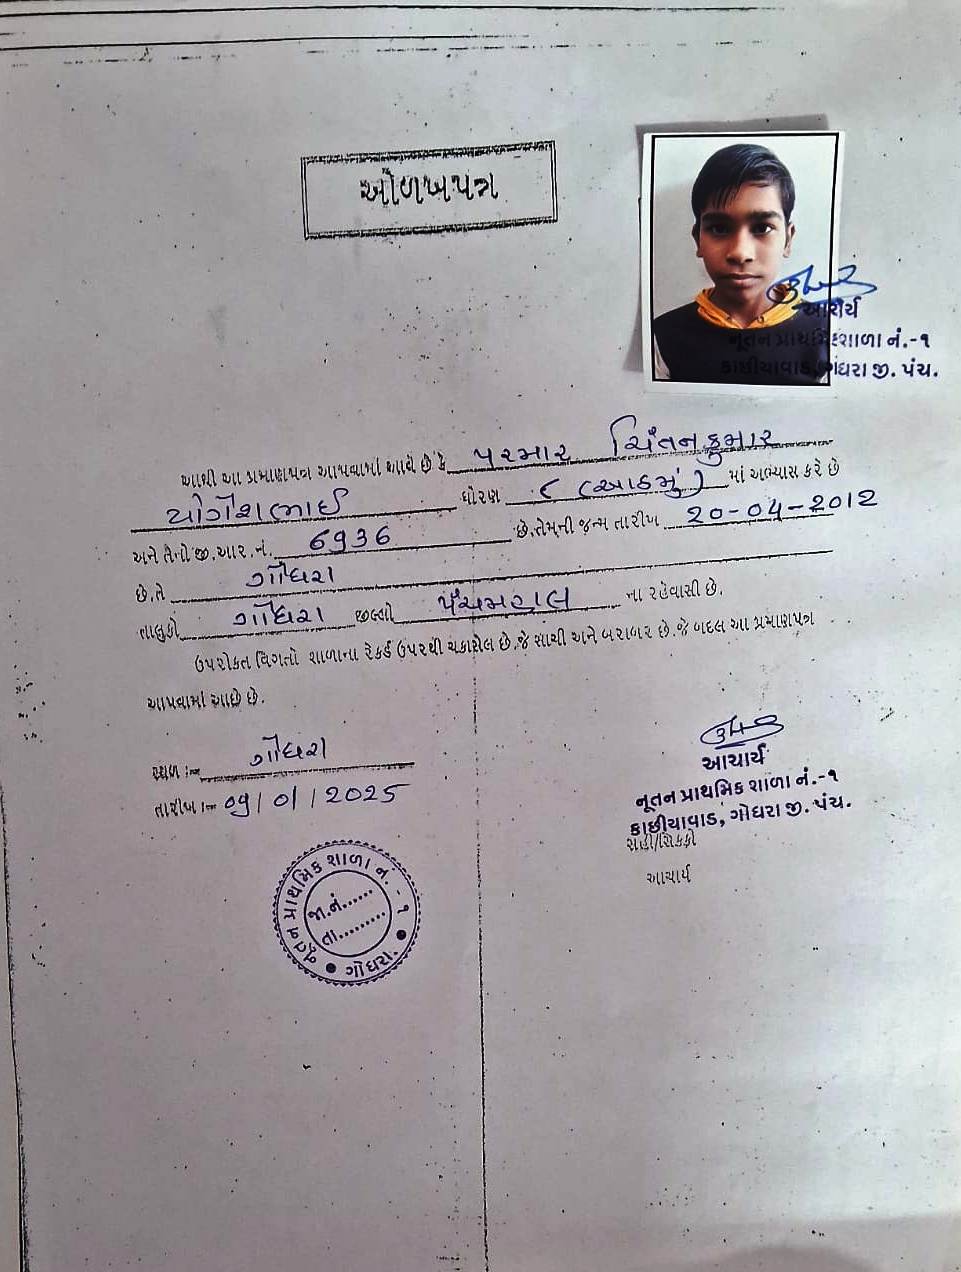 ઓળખપત્ર
આચાર્ય
નૂતન પ્રાથમિક શાળા નં.-૧
કાછીયાવાડ, ગોધરા જી. પંચ.
આથી આ પ્રમાણપત્ર આપવામાં આવે છે કે પરમાર ચિંતનકુમાર
યોગેશભાઈ ધોરણ ૮ (આઠમું) માં અભ્યાસ કરે છે
અને તેનો જી.આર.નં. 6936 છે.તેમની જન્મ તારીખ 20-04-2012
છે.તે ગોધરા
તાલુકો ગોધરા જીલ્લો પંચમહાલ ના રહેવાસી છે.
ઉપરોકત વિગતો શાળાના રેકર્ડ ઉપરથી ચકાસેલ છે.જે સાચી અને બરાબર છે.જે બદલ આ પ્રમાણપત્ર
આપવામાં આછે છે.
સ્થળ :- ગોધરા
તારીખ :- 09/01/2025
આચાર્ય
નૂતન પ્રાથમિક શાળા નં.-૧
કાછીયાવાડ, ગોધરા જી. પંચ.
સહી/સિકકો
આચાર્ય
નૂતન પ્રાથમિક શાળા નં. - ૧
જા.નં......
તા.........
ગોધરા.